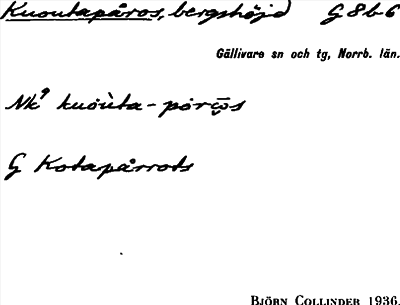 Kuoutapåros, bergshöjd G8b6
Gällivare sn och tg, Norrb. län.
Nk⁹ kuoùta-pårω̮s
G Kotapårrots
BJÖRN COLLINDER 1936.